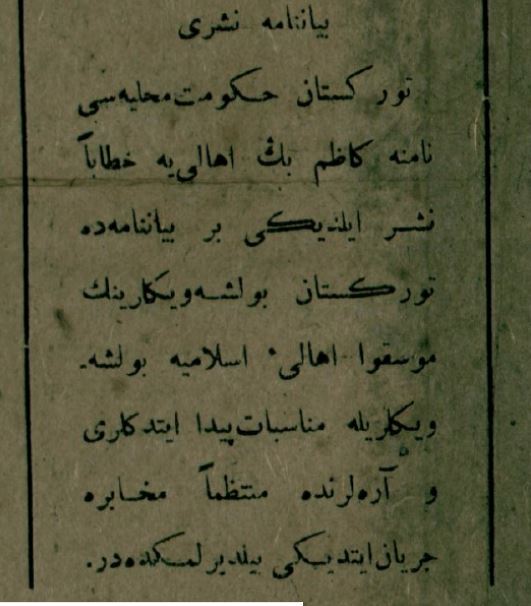 بياننامه نشرى
توركستان حكومت محليه‌سى
نامنه كاظم بك اهالى‌يه خطاباً
نشر ايلديكى بر بياننامه‌ده
توركستان بولشه‌ويكلرينك
موسقوا اهالىٔ اسلاميه بولشه‌ـ
ويكلريله مناسبات پيدا ايتدكلرى
و آره‌لرنده منتظماً مخابره
جريان ايتديكى بيلديرلمكده‌در.